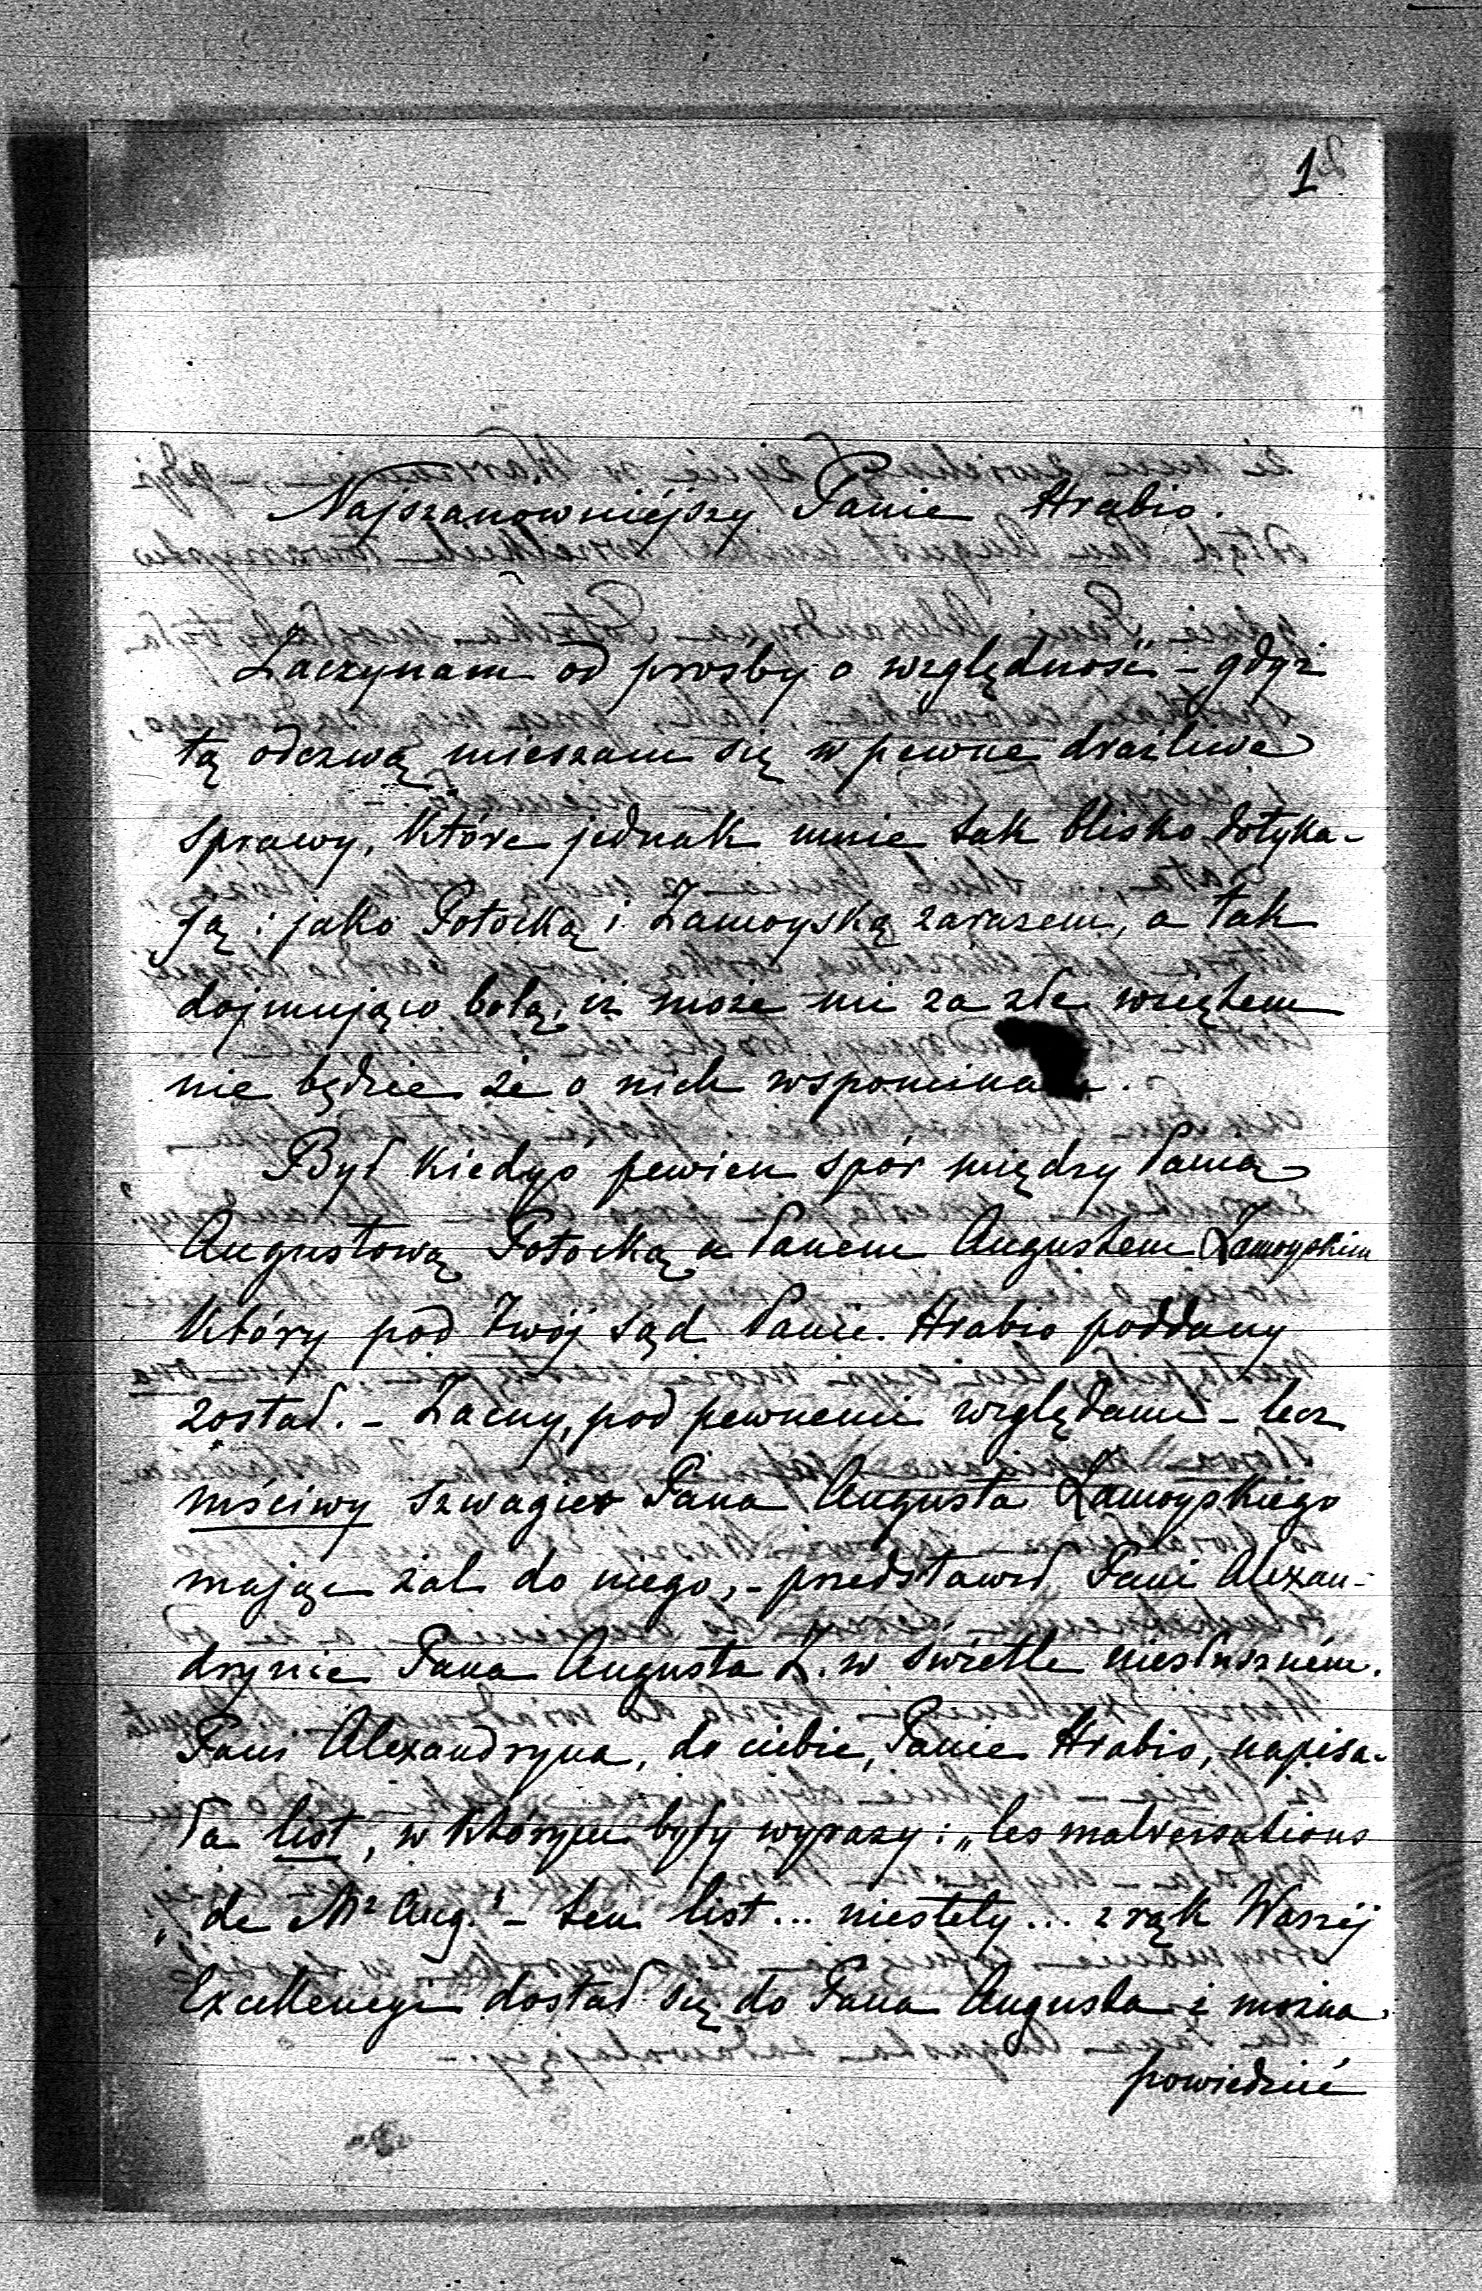 1
Najszanowniéjszy Panie Hrabio.
Zaczynam od prośby o względność – gdyż
tą odezwą mieszam się w pewne drażliwe
sprawy, które jednak mnie tak blisko dotyka-
ją: jako Potocką i Zamoyską zarazem, a tak
dojmująco bolą, iż może mi za złe wziętem
nie będzie że o nich wspominam.
Był kiedyś pewien spór między Panią
Augustową Potocką a Panem Augustem Zamoyskim
który pod Twój sąd Panie Hrabio poddany
został. – Zacny, pod pewnemi względami – lecz
mściwy szwagier Pana Augusta Zamoyskiego
mając żal do niego, – przedstawił Pani Alexan-
drynie Pana Augusta Z. w świetle niesłuszném.
Pani Alexandryna, do ciebie, Panie Hrabio, napisa-
ła list, w którym były wyrazy: „les malversations
„de Mr Aug." – ten list... niestety... z rąk Waszéj
Excellencyi dostał się do Pana Augusta i można
powiedzieć